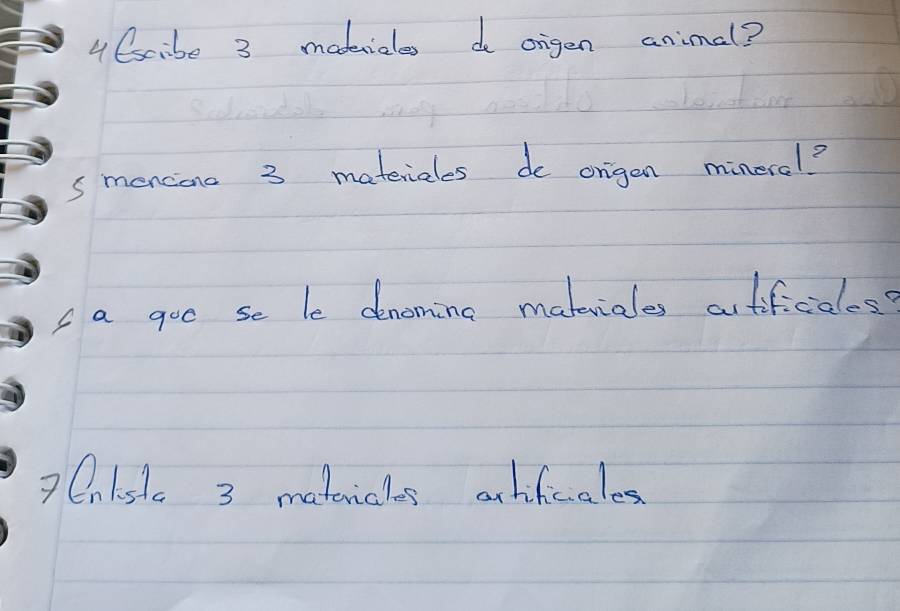 4 Escribe 3 materiales de origen animal?
5 menciona 3 materiales de origen mineral?
6 a que se le denomina materiales artificiales?
7 Enlista 3 materiales artificiales